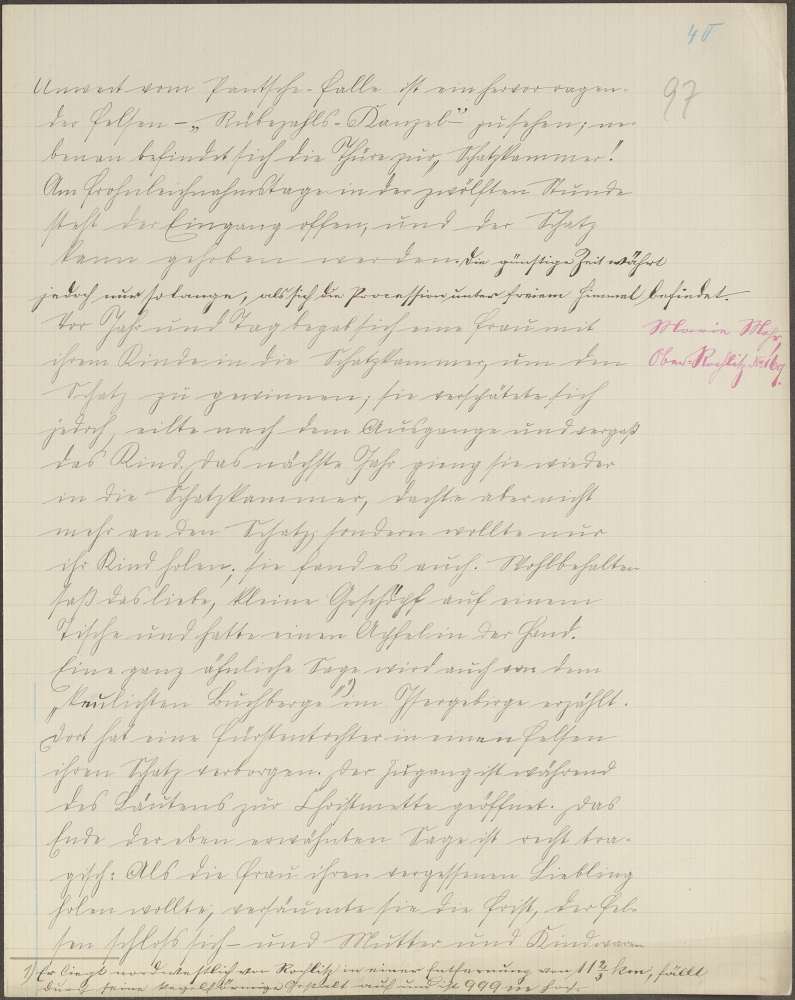 4 V
97
Unweit vom Pantsche-Falle ist ein hervorragen-
der Felsen – „Rübezahls-Kanzel" zu sehen; ne-
benan befindet sich die Thüre zur „Schatzkammer".
Am Frohnleichnahmstage in der zwölften Stunde
steht der Eingang offen, und der Schatz
kann gehoben werden. Die günstige Zeit währt
jedoch nur solange, als sich die Procession unter freiem Himmel befindet.
Vor Jahr und Tag begab sich eine Frau mit
Marie
ihrem Kinde in die Schatzkammer, um den
Ober-Rochlitz No 169.
Schatz zu gewinnen; sie verspätete sich
jedoch, eilte nach dem Ausgange und vergaß
das Kind. Das nächste Jahr gieng sie wieder
in die Schatzkammer, dachte aber nicht
mehr an den Schatz, sondern wollte nur
ihr Kind holen; sie fand es auch. Wohlbehalten
saß das liebe, kleine Geschöpf auf einem
Tische und hatte einen Apfel in der Hand.
Eine ganz ähnliche Sage wird auch von dem
„keulichten Buchberge" 1) im Isergebirge erzählt.
Dort hat eine Fürstentochter in einem Felsen
ihren Schatz verborgen. Der Zugang ist während
des Läutens zur Christmette geöffnet. Das
Ende der eben erwähnten Sage ist recht tra-
gisch: Als die Frau ihren vergessenen Liebling
holen wollte, versäumte sie die Frist, der Fel-
sen schloss sich – und Mutter und Kind waren
1) Er liegt nordwestlich von Rochlitz in einer Entfernung von 11 2/3 km, fällt
durch seine kegelförmige Gestalt auf und ist 999 m hoch.